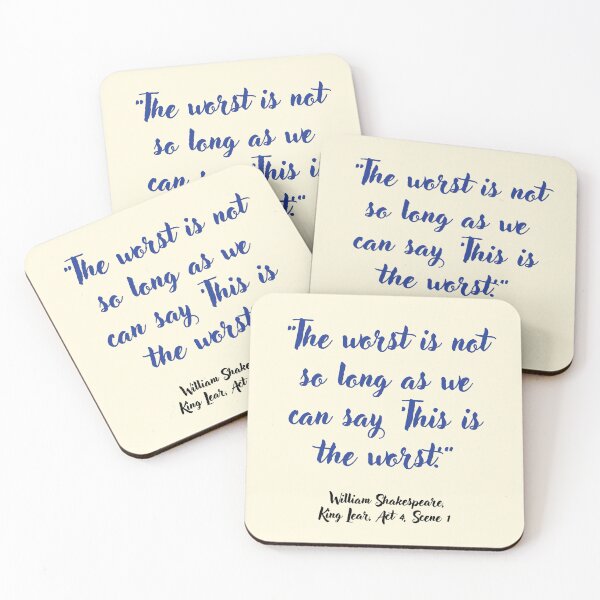 “The worst is not
so long as we
can This is
“The worst is not
so long as we
can say ‘This is
the worst.’“
“The worst is not
so long as we
can say ‘This is
the worst
William
King Lear, Act
“The worst is not
so long as we
can say ‘This is
the worst.’“
William Shakespeare,
King Lear, Act 4, Scene 1